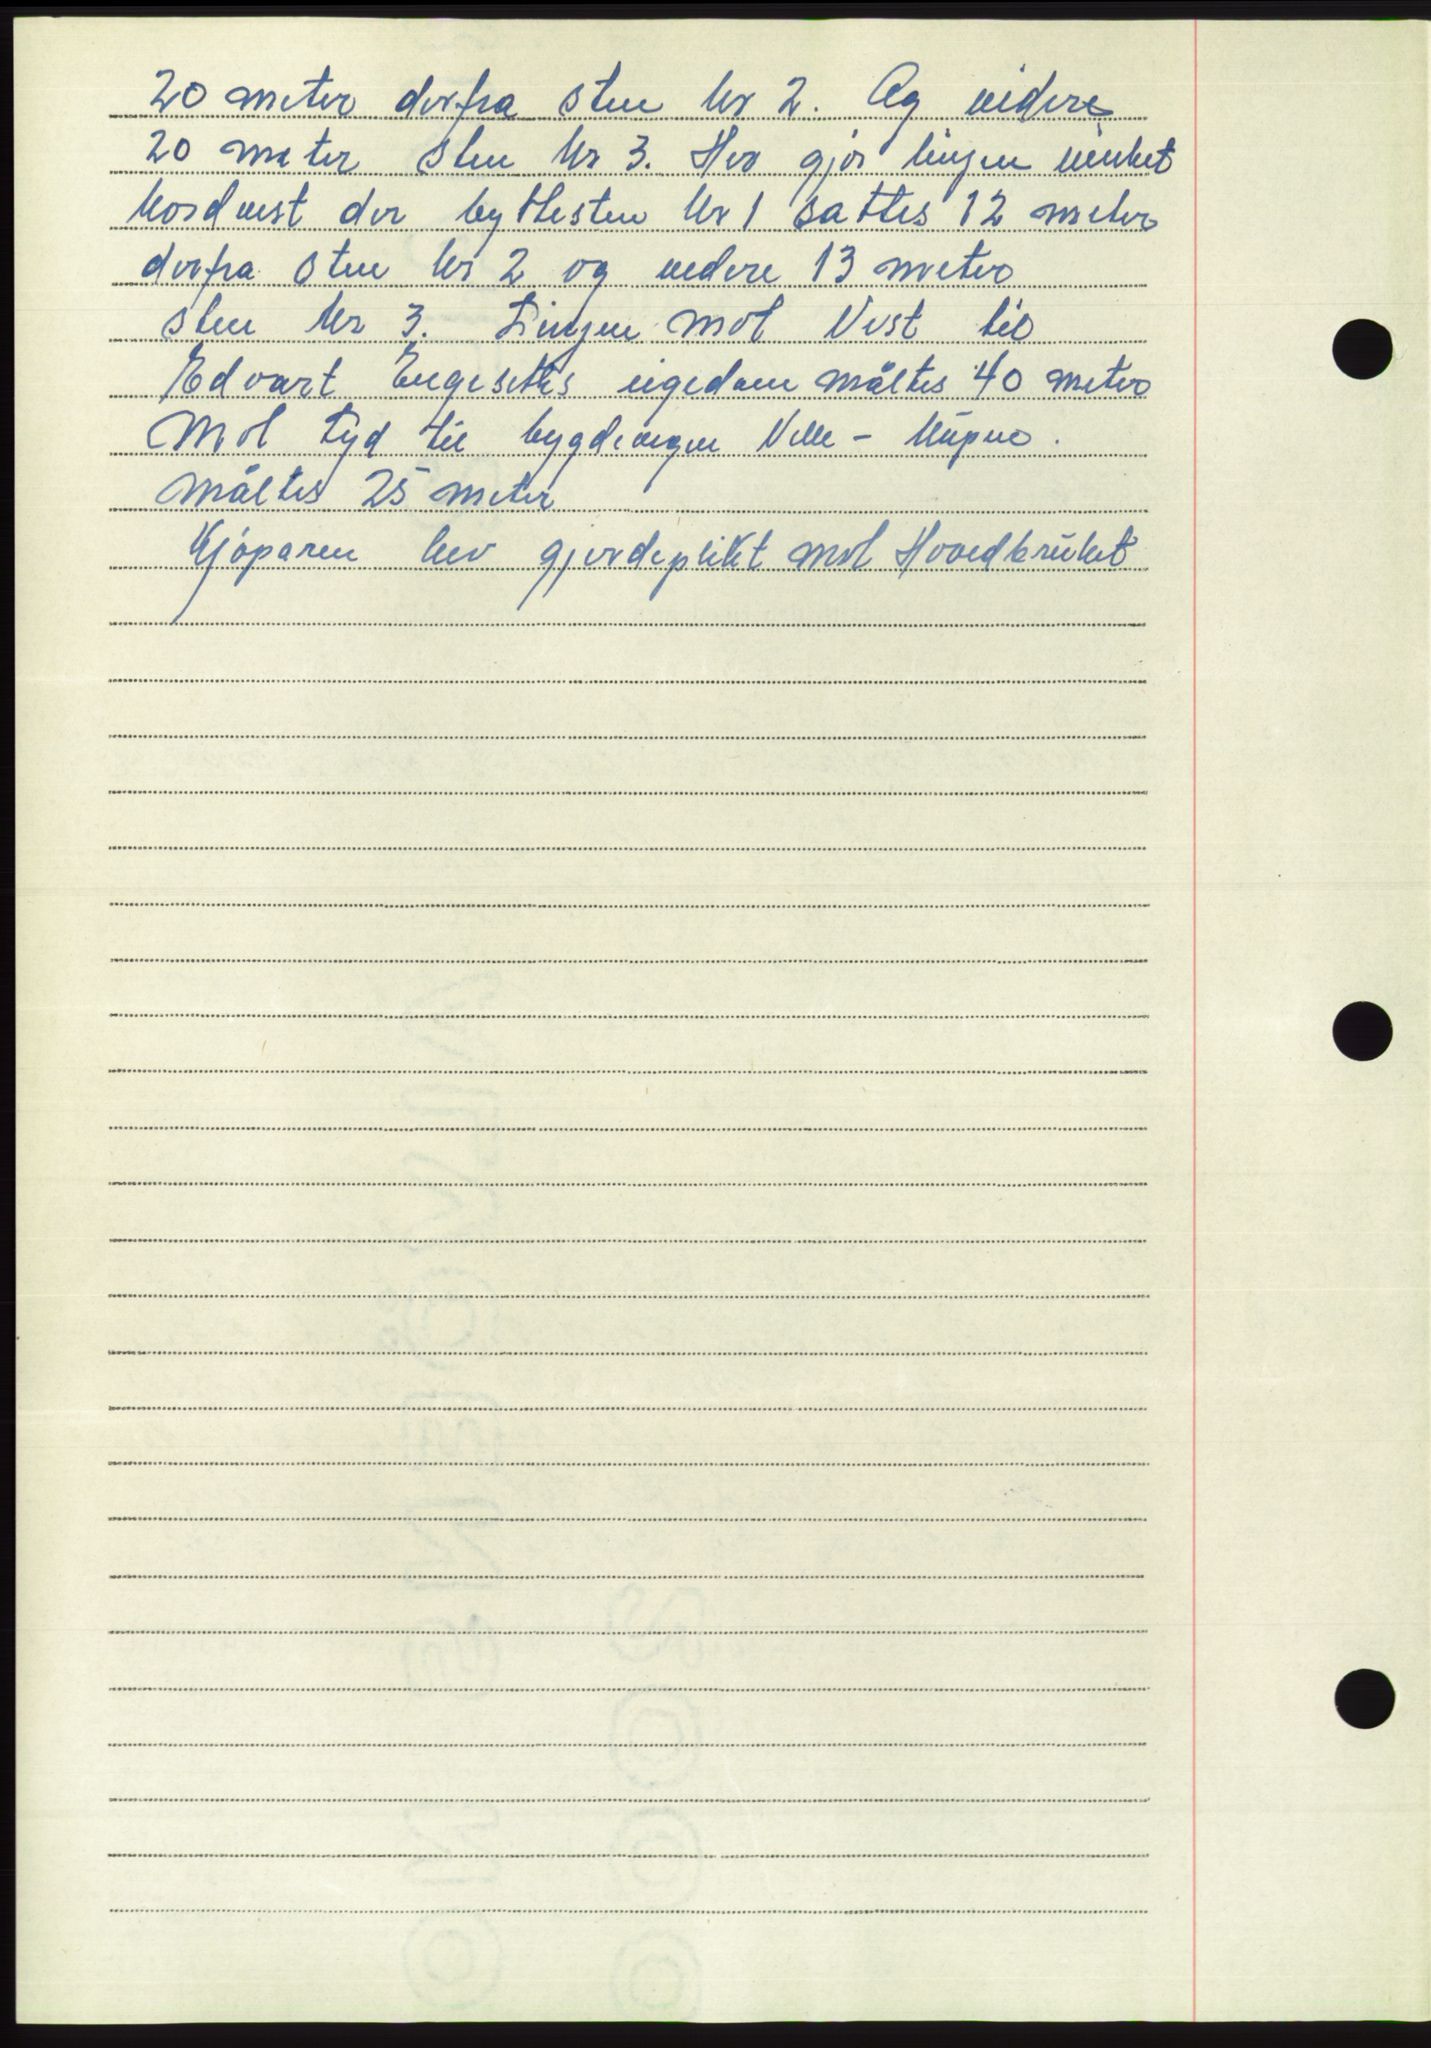 20 meter derfra sten Nr 2. Og videre
20 meter sten Nr 3. Her gjør linjen vinket
Nordvest der byttesten Nr 1 sattes 12 meter
derfra sten Nr 2 og vedere 13 meter
sten Nr 3. Linjen mot Vest til
Edvart Engesetts eigedom måltes 40 meter
Mot syd til bygdevegen
måltes 25 meter
Kjøparen hev gjerdeplikt mot Hovedbruket